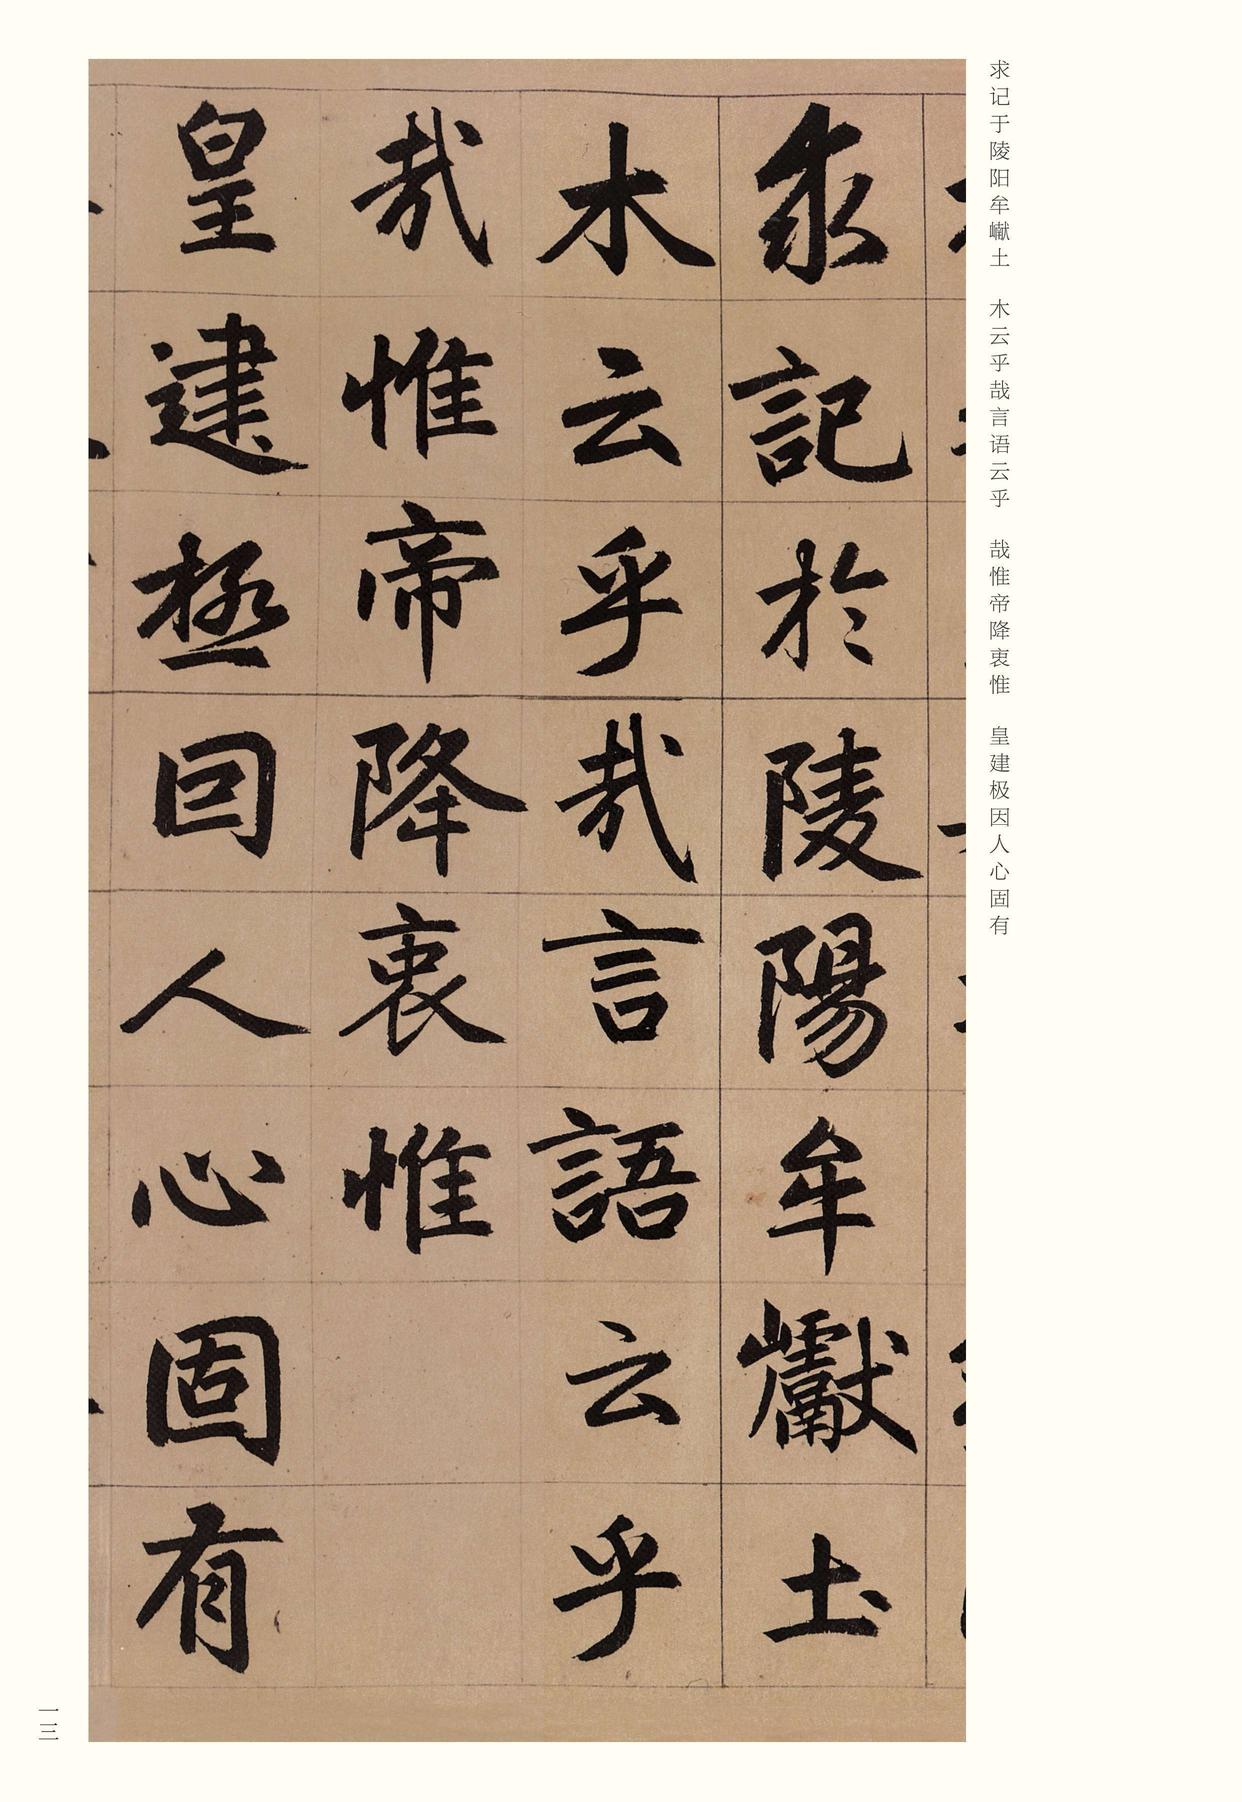 求记于陵阳牟巘土　木云乎哉言语云乎　哉惟帝降衷惟　皇建极因人心固有
求記於陵陽牟巘土
木云乎哉言語云乎
哉惟帝降衷惟
皇建極因人心固有
一三